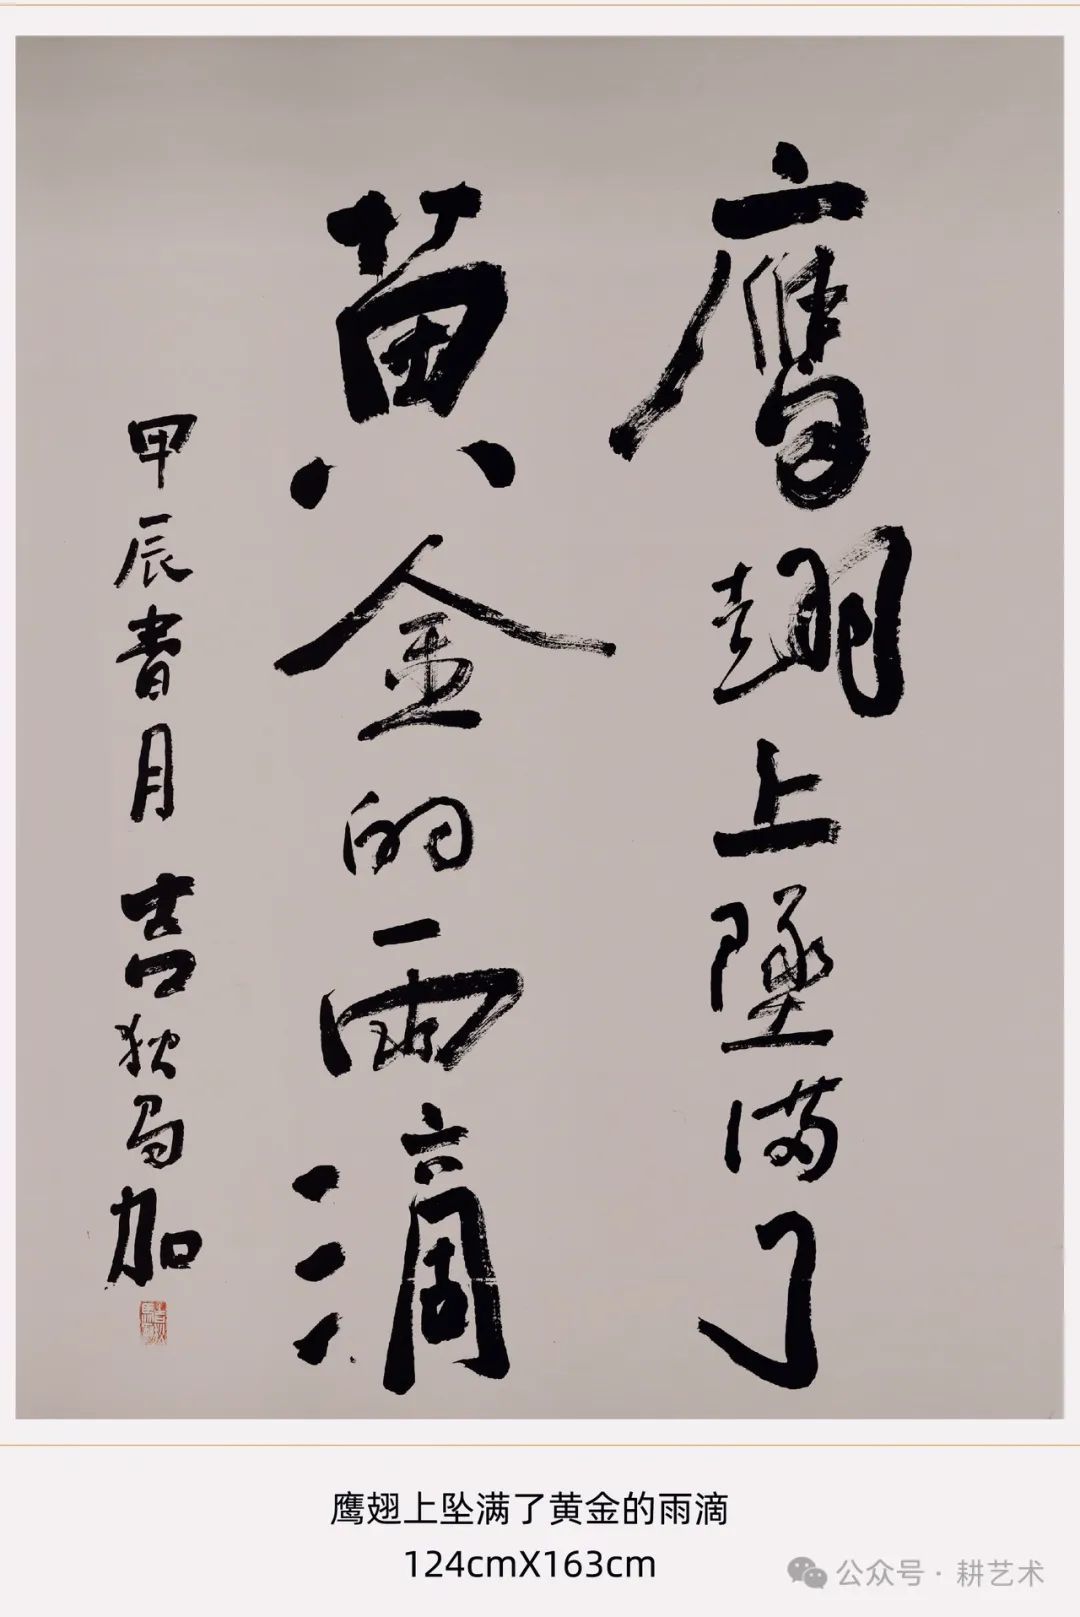 鹰翅上墜满了
黄金的雨滴
甲辰春月 吉狄马加
鹰翅上坠满了黄金的雨滴
124cmX163cm
公众号·耕艺术